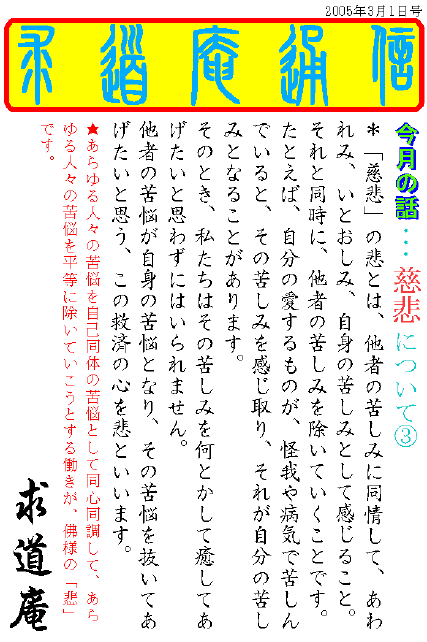 2005年3月1日号
求道庵通信
今月の話…慈悲について③
＊「慈悲」の悲とは、他者の苦しみに同情して、あわ
れみ、いとおしみ、自身の苦しみとして感じること。
それと同時に、他者の苦しみを除いていくことです。
たとえば、自分の愛するものが、怪我や病気で苦しん
でいると、その苦しみを感じ取り、それが自分の苦し
みとなることがあります。
そのとき、私たちはその苦しみを何とかして癒してあ
げたいと思わずにはいられません。
他者の苦悩が自身の苦悩となり、その苦悩を抜いてあ
げたいと思う、この救済の心を悲といいます。
★あらゆる人々の苦悩を自己同体の苦悩として同心同調して、あら
ゆる人々の苦悩を平等に除いていこうとする働きが、佛様の「悲」
です。
求道庵